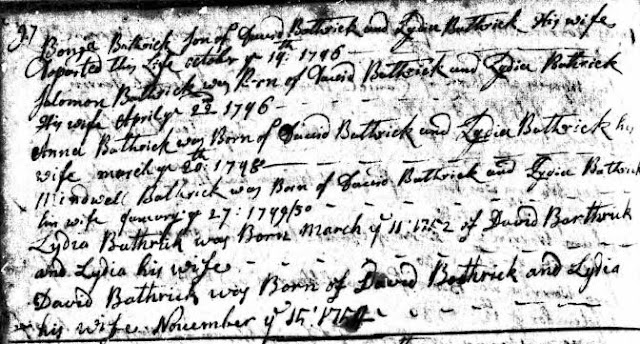 Bathrick Son of David Bathrick and Lydia Bathrick His wife
Departed this Life october ye 19th: 1746
Solomon Bathrick was Born of David Bathrick and Lydia Bathrick
His wife April ye 23d 1746
Anna Bathrick was Born of David Bathrick and Lydia Bathrick his
wife march ye 20th: 1748
Mindwell Bathrick was Born of David Bathrick and Lydia Bathrick
his wife January ye 27: 1749/50
Lydia Bathrick was Born March ye 11: 1752 of David Barthrick
and Lydia his wife
David Bathrick was Born of David Bathrick and Lydia
his wife November ye 15: 1754